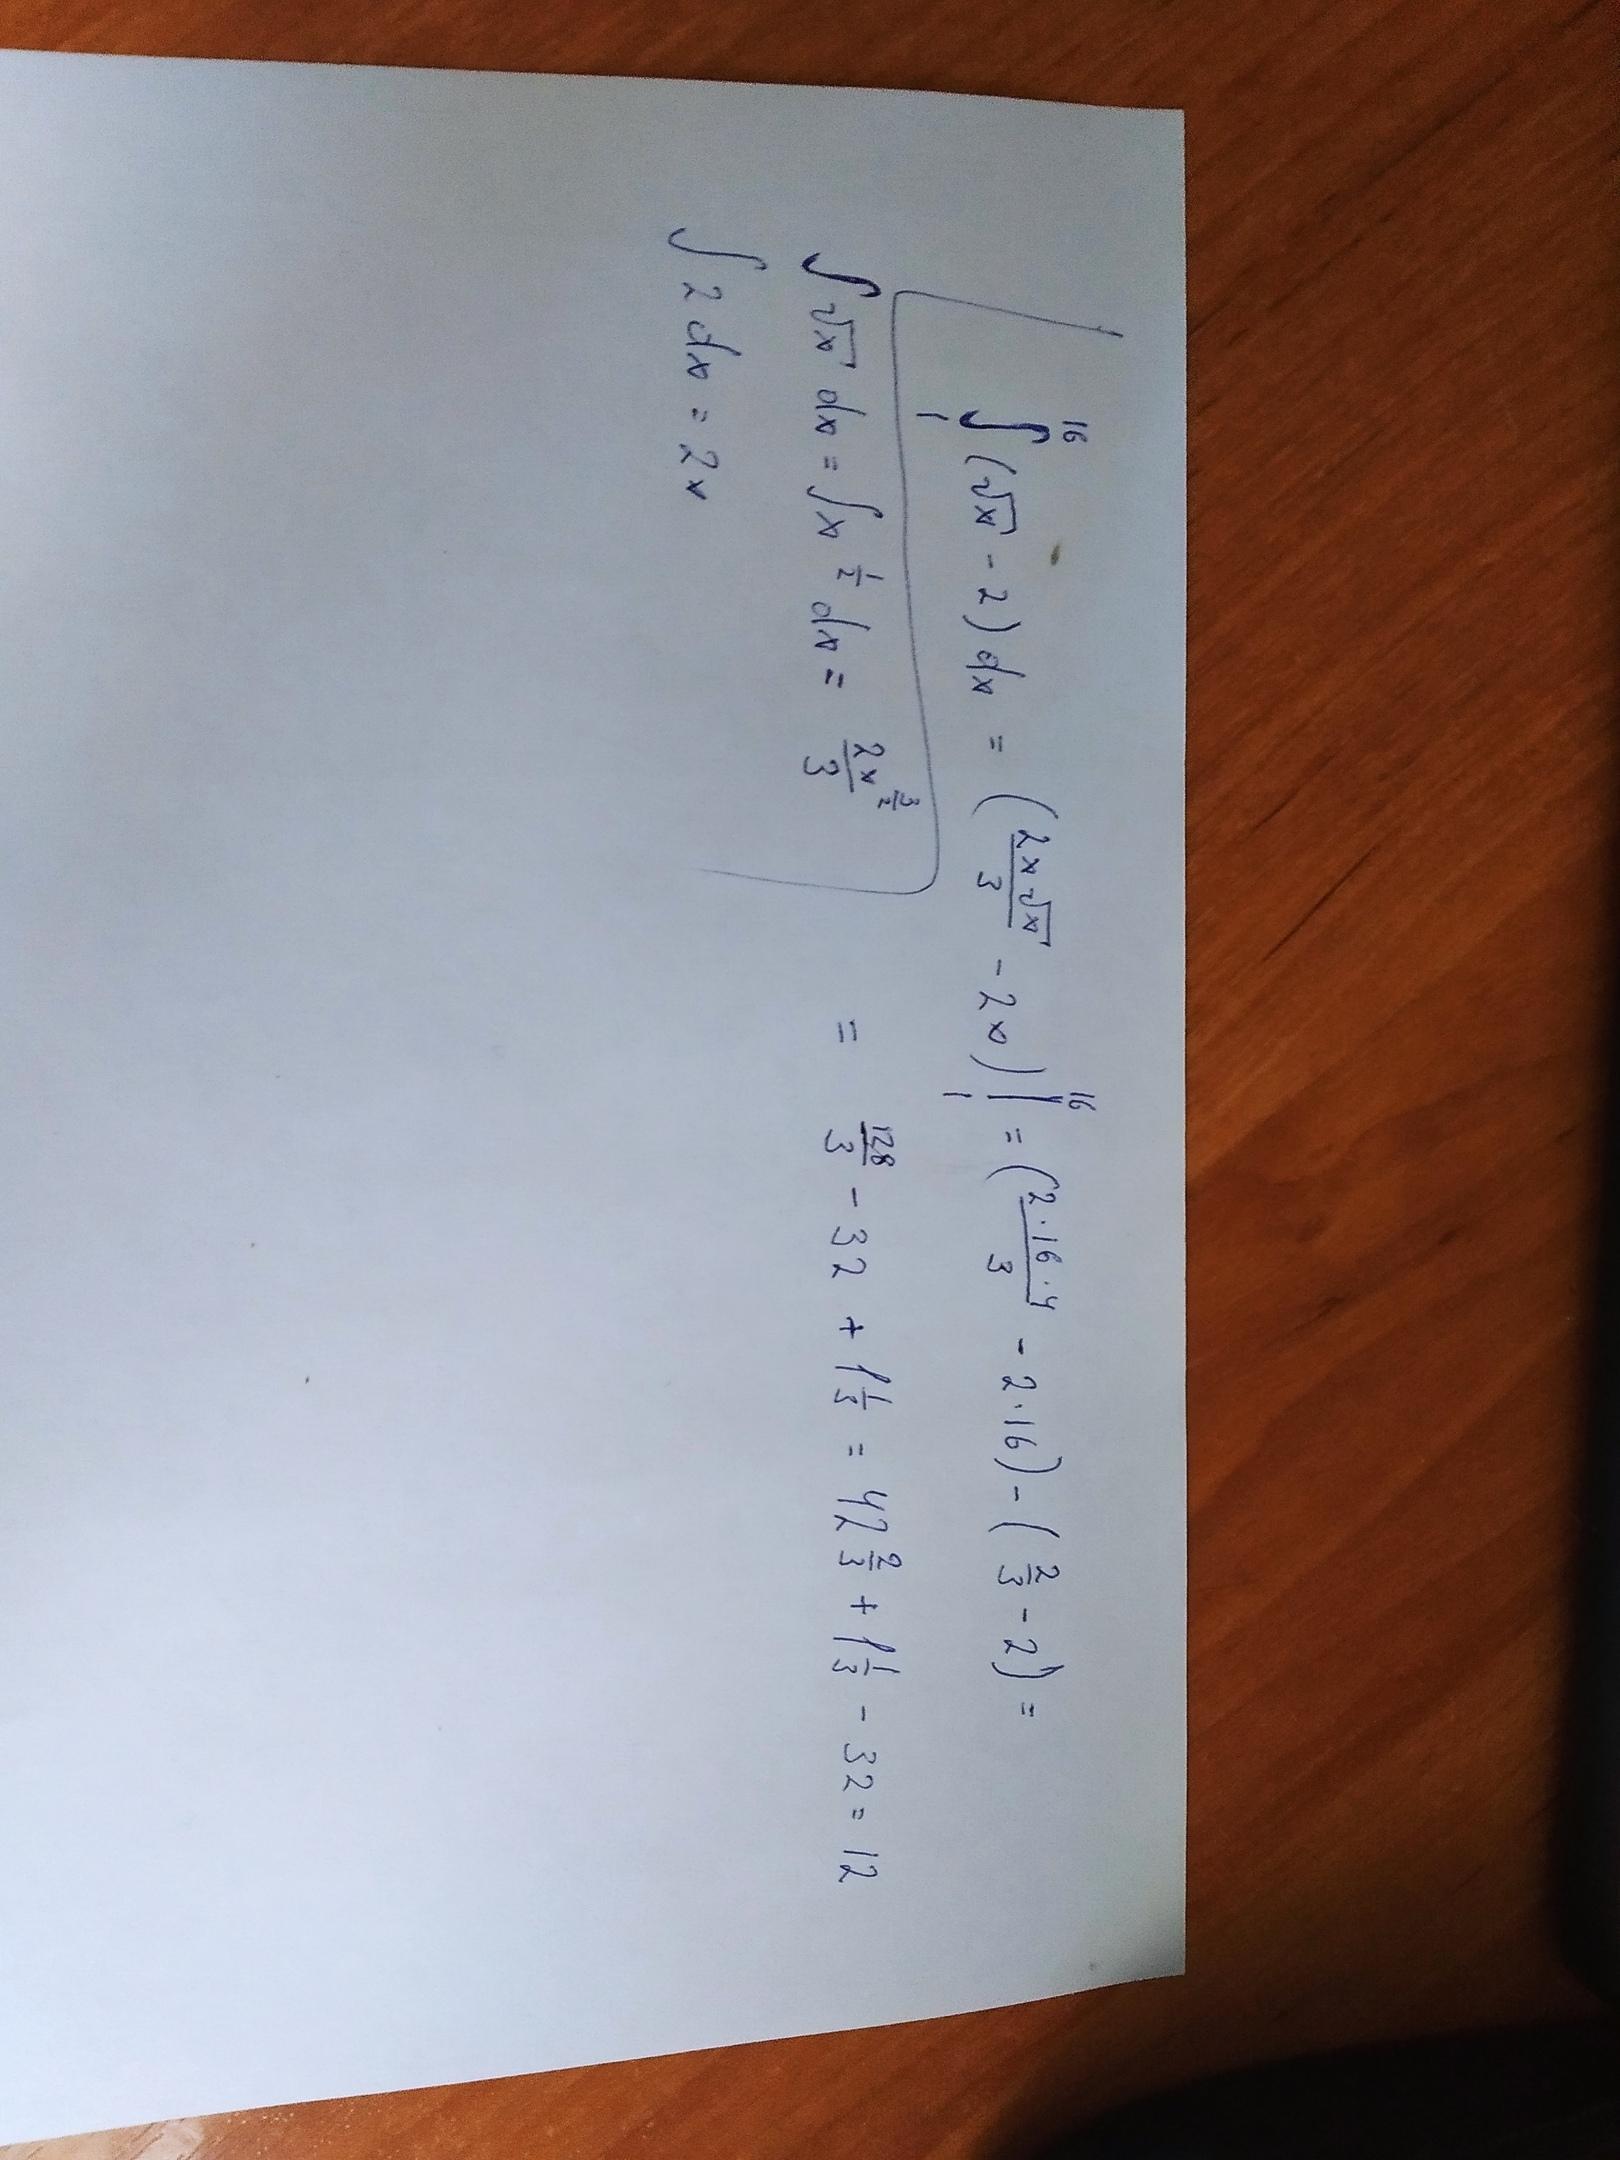 ∫₁¹⁶ (√x - 2) dx = (2x√x/3 - 2x)|₁¹⁶ = (2·16·4/3 - 2·16) - (2/3 - 2) =
∫ √x dx = ∫ x^(1/2) dx = 2x^(3/2)/3
= 128/3 - 32 + 1 1/3 = 42 2/3 + 1 1/3 - 32 = 12
∫ 2 dx = 2x